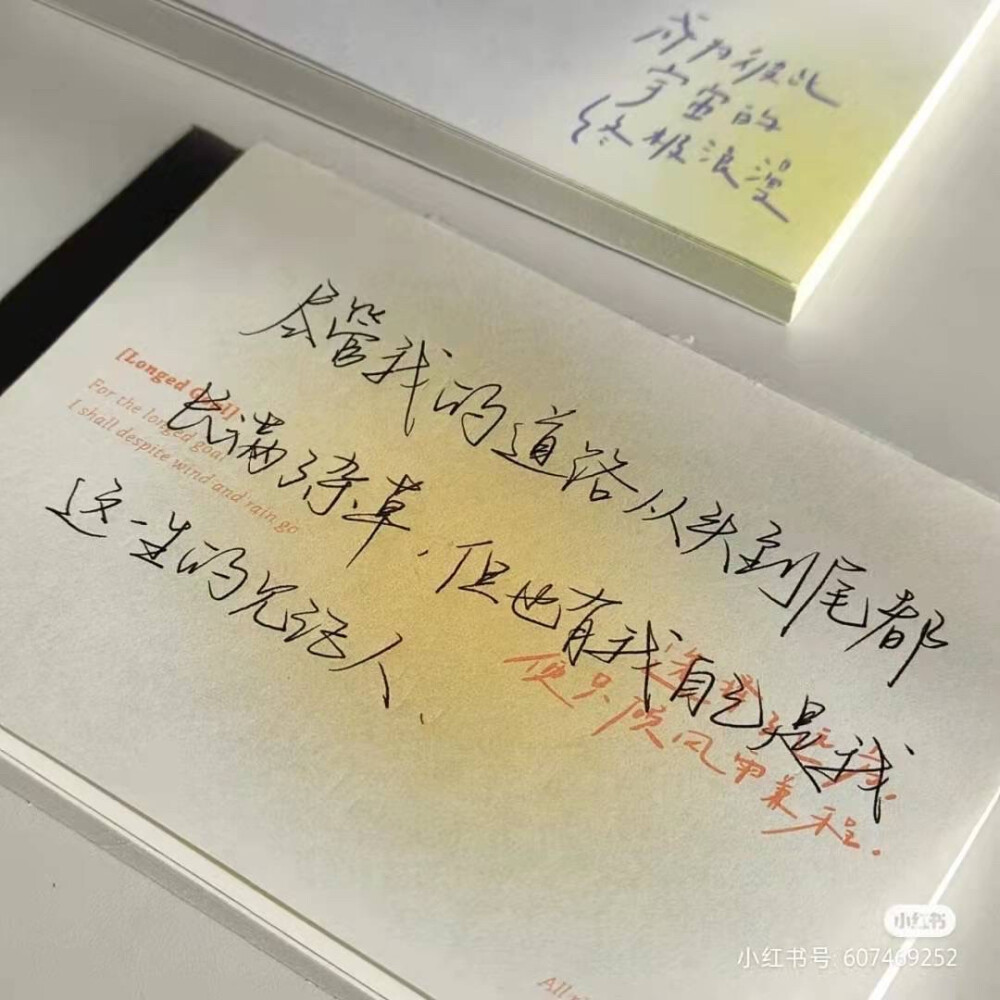 成为彼此
宇宙的
终极浪漫
尽管我的道路从头到尾都
长满了杂草,但也有我自己是我
这一生的见证人.
[Longed
For the longed goal
I shall despite wind and rain go
便只顾风雨兼程.
All
小红书
小红书号: 607469252